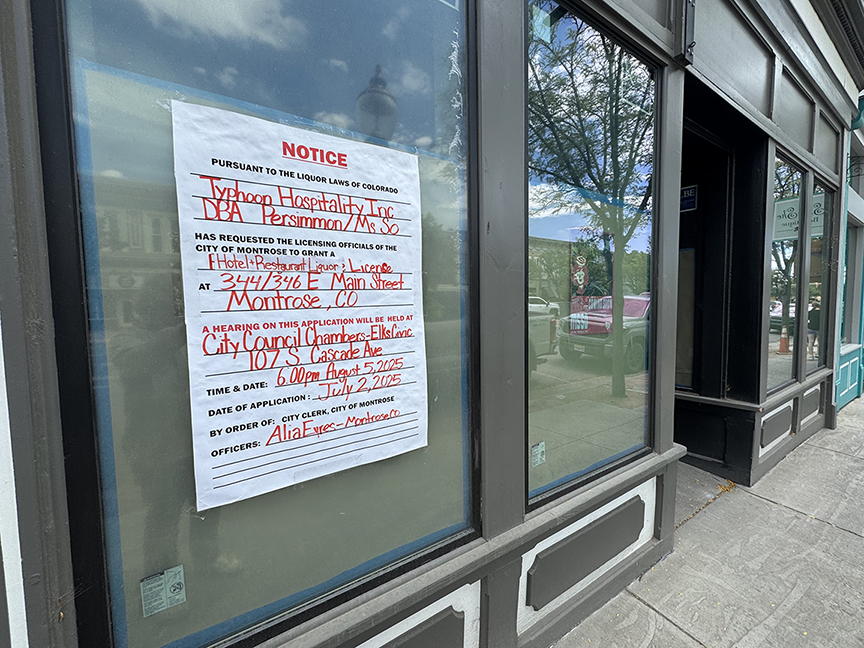 NOTICE
PURSUANT TO THE LIQUOR LAWS OF COLORADO
Typhoon Hospitality Inc
DBA Persimmon/Ms. So
HAS REQUESTED THE LICENSING OFFICIALS OF THE
CITY OF MONTROSE TO GRANT A
Hotel + Restaurant Liquor License
AT 344/346 E Main Street
Montrose, CO
A HEARING ON THIS APPLICATION WILL BE HELD AT
City Council Chambers-Elks Civic
107 S Cascade Ave
TIME & DATE: 6:00pm August 5, 2025
DATE OF APPLICATION: July 2, 2025
BY ORDER OF: CITY CLERK, CITY OF MONTROSE
OFFICERS: Alia Eyres-Montrose CO